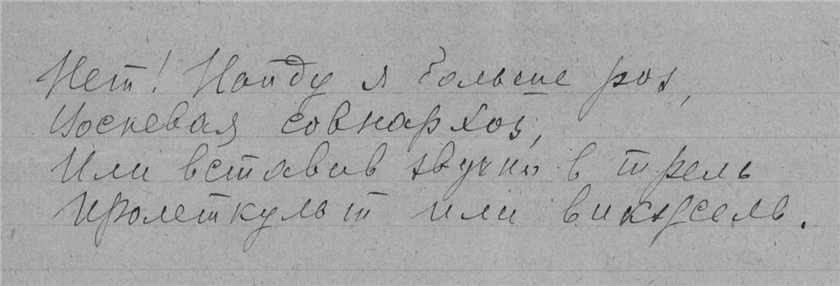 Нет! Найду я больше роз,
Воспевая совнархоз,
Или вставив звучно в трель
Пролеткульт или викжель.